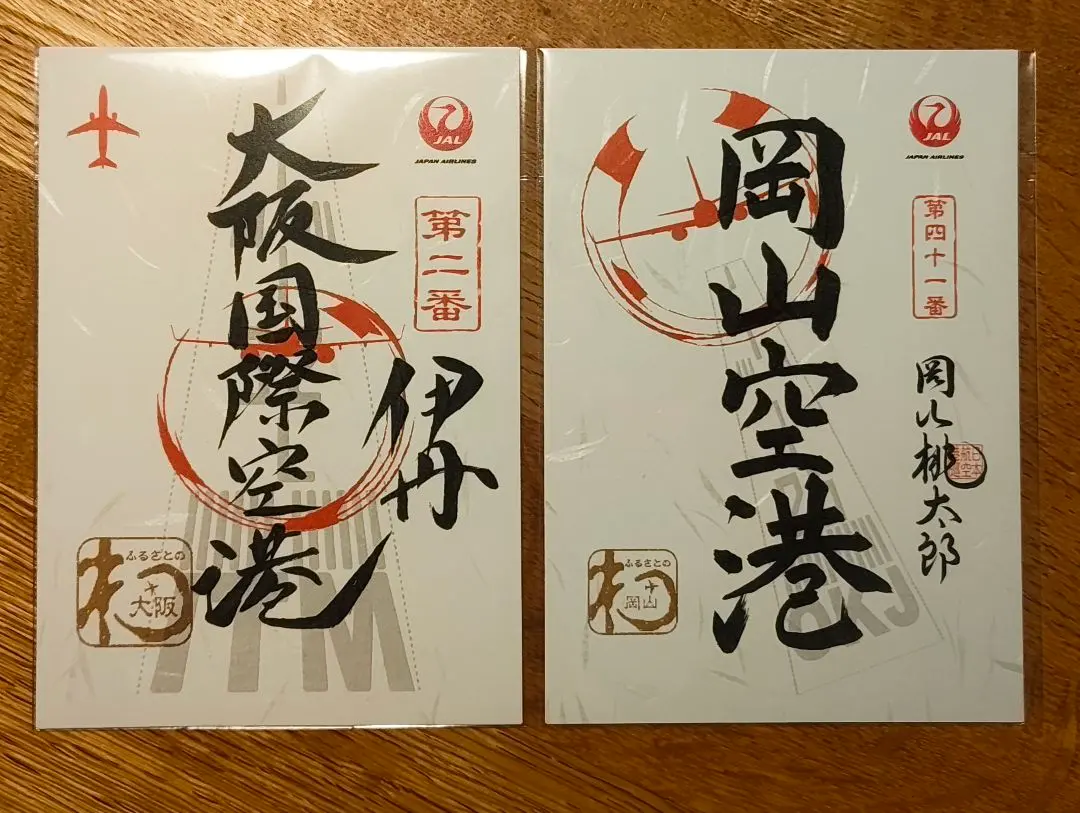 大阪国際空港
伊丹
JAL
JAPAN AIRLINES
第二番
ふるさとの
大阪
ITM
岡山空港
JAL
JAPAN AIRLINES
第四十一番
岡山桃太郎
ふるさとの
岡山
OKJ